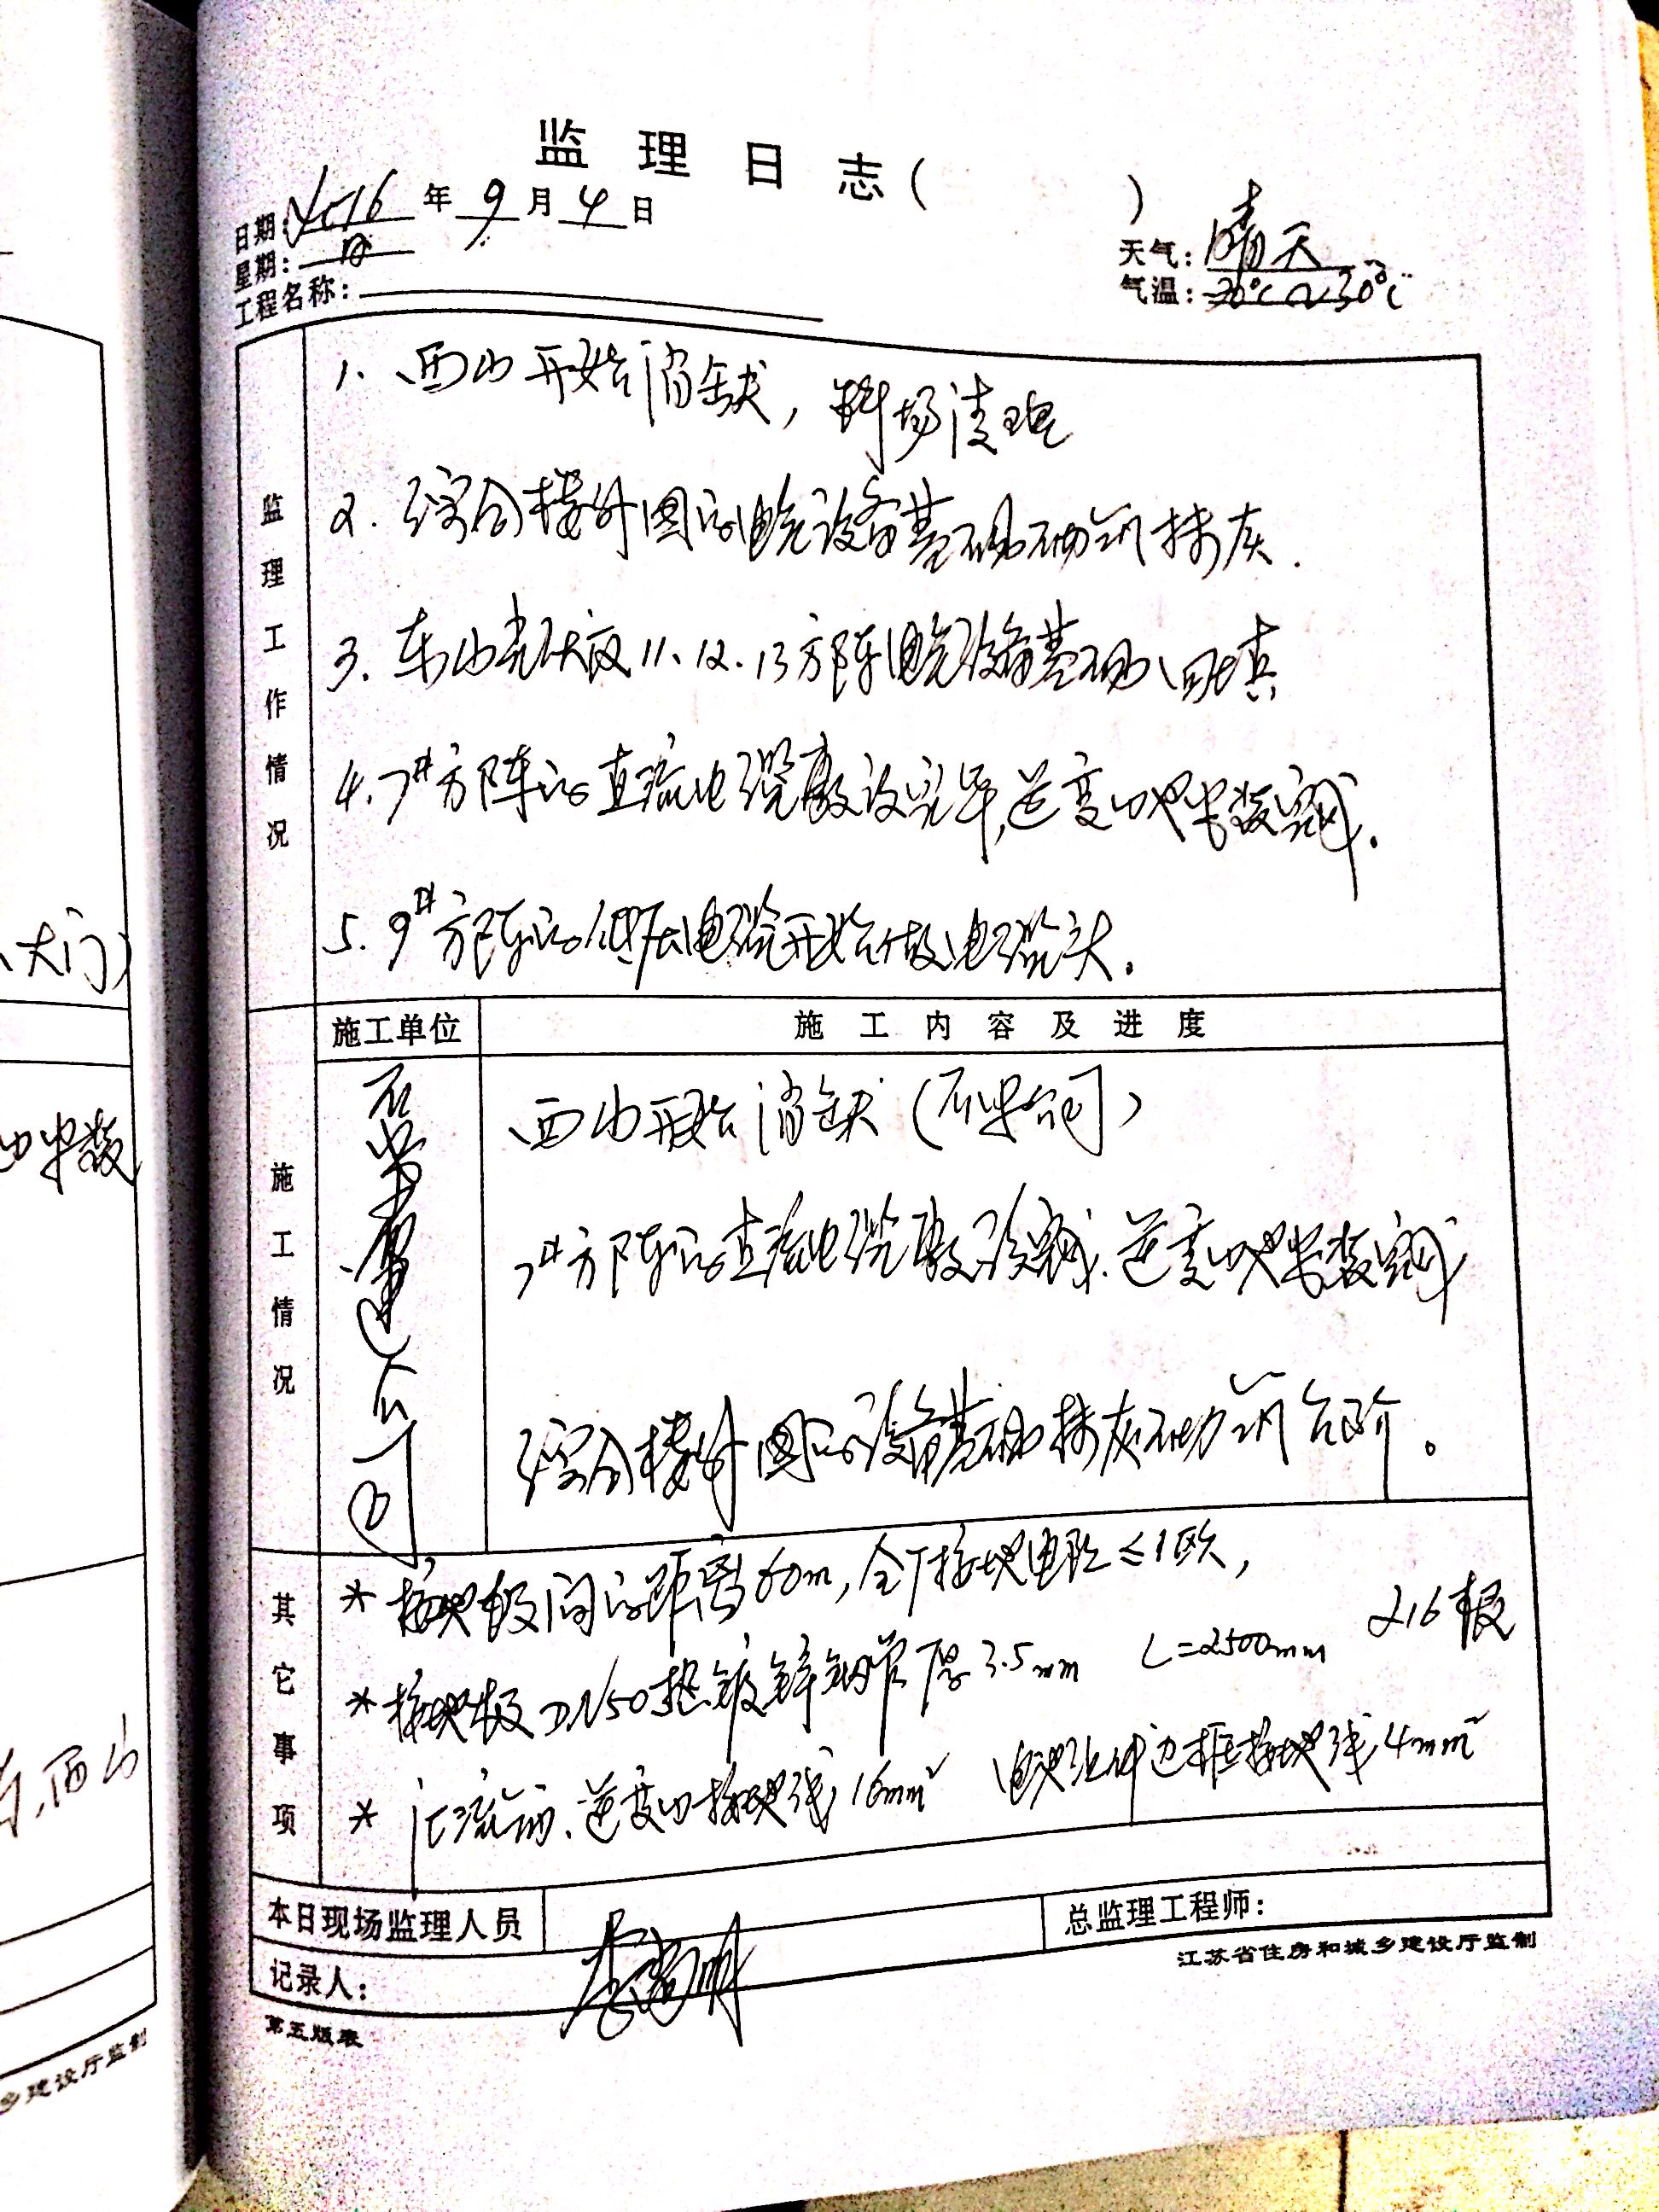 监理日志（　　　）
日期：2016年9月4日
星期：日
天气：晴天
气温：20℃~30℃
工程名称：
监理工作情况
1、西山开始消缺，料场清理
2. 综合楼外围的电缆设备基础砌砌抹灰.
3. 东山光伏区11、12、13方阵电缆设备基础回填
4. 7#方阵的直流电缆敷设完毕,逆变
5. 9#方阵的低压电缆开始做电缆头.
施工单位
施工内容及进度
施工情况
公司
西山开始消缺（
7#方阵的直流电缆敷设完成.逆变
综合楼外围的设备基础抹灰 台阶。
其它事项
*接地极间的距离60m,全厂接地电阻≤1欧,
*接地极DN50热镀锌钢管厚3.5mm L=2500mm 216根
*汇流箱、逆变 接地线16mm² 电池组件边框接地线4mm²
本日现场监理人员
总监理工程师：
记录人：
江苏省住房和城乡建设厅监制
第五版表
大门）
西山
乡建设厅监制